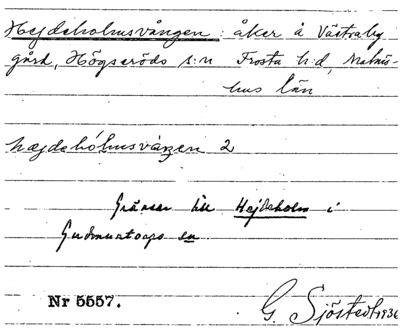 Hejdeholmsvången: åker å Västraby
gård, Högseröds s:n Frosta h:d, Malmö-
hus län
hæjdəhólmsváŋən 2
Gränsar till Hejdeholm i
Gudmuntorps sn
Nr 5557.
G. Sjöstedt 1936